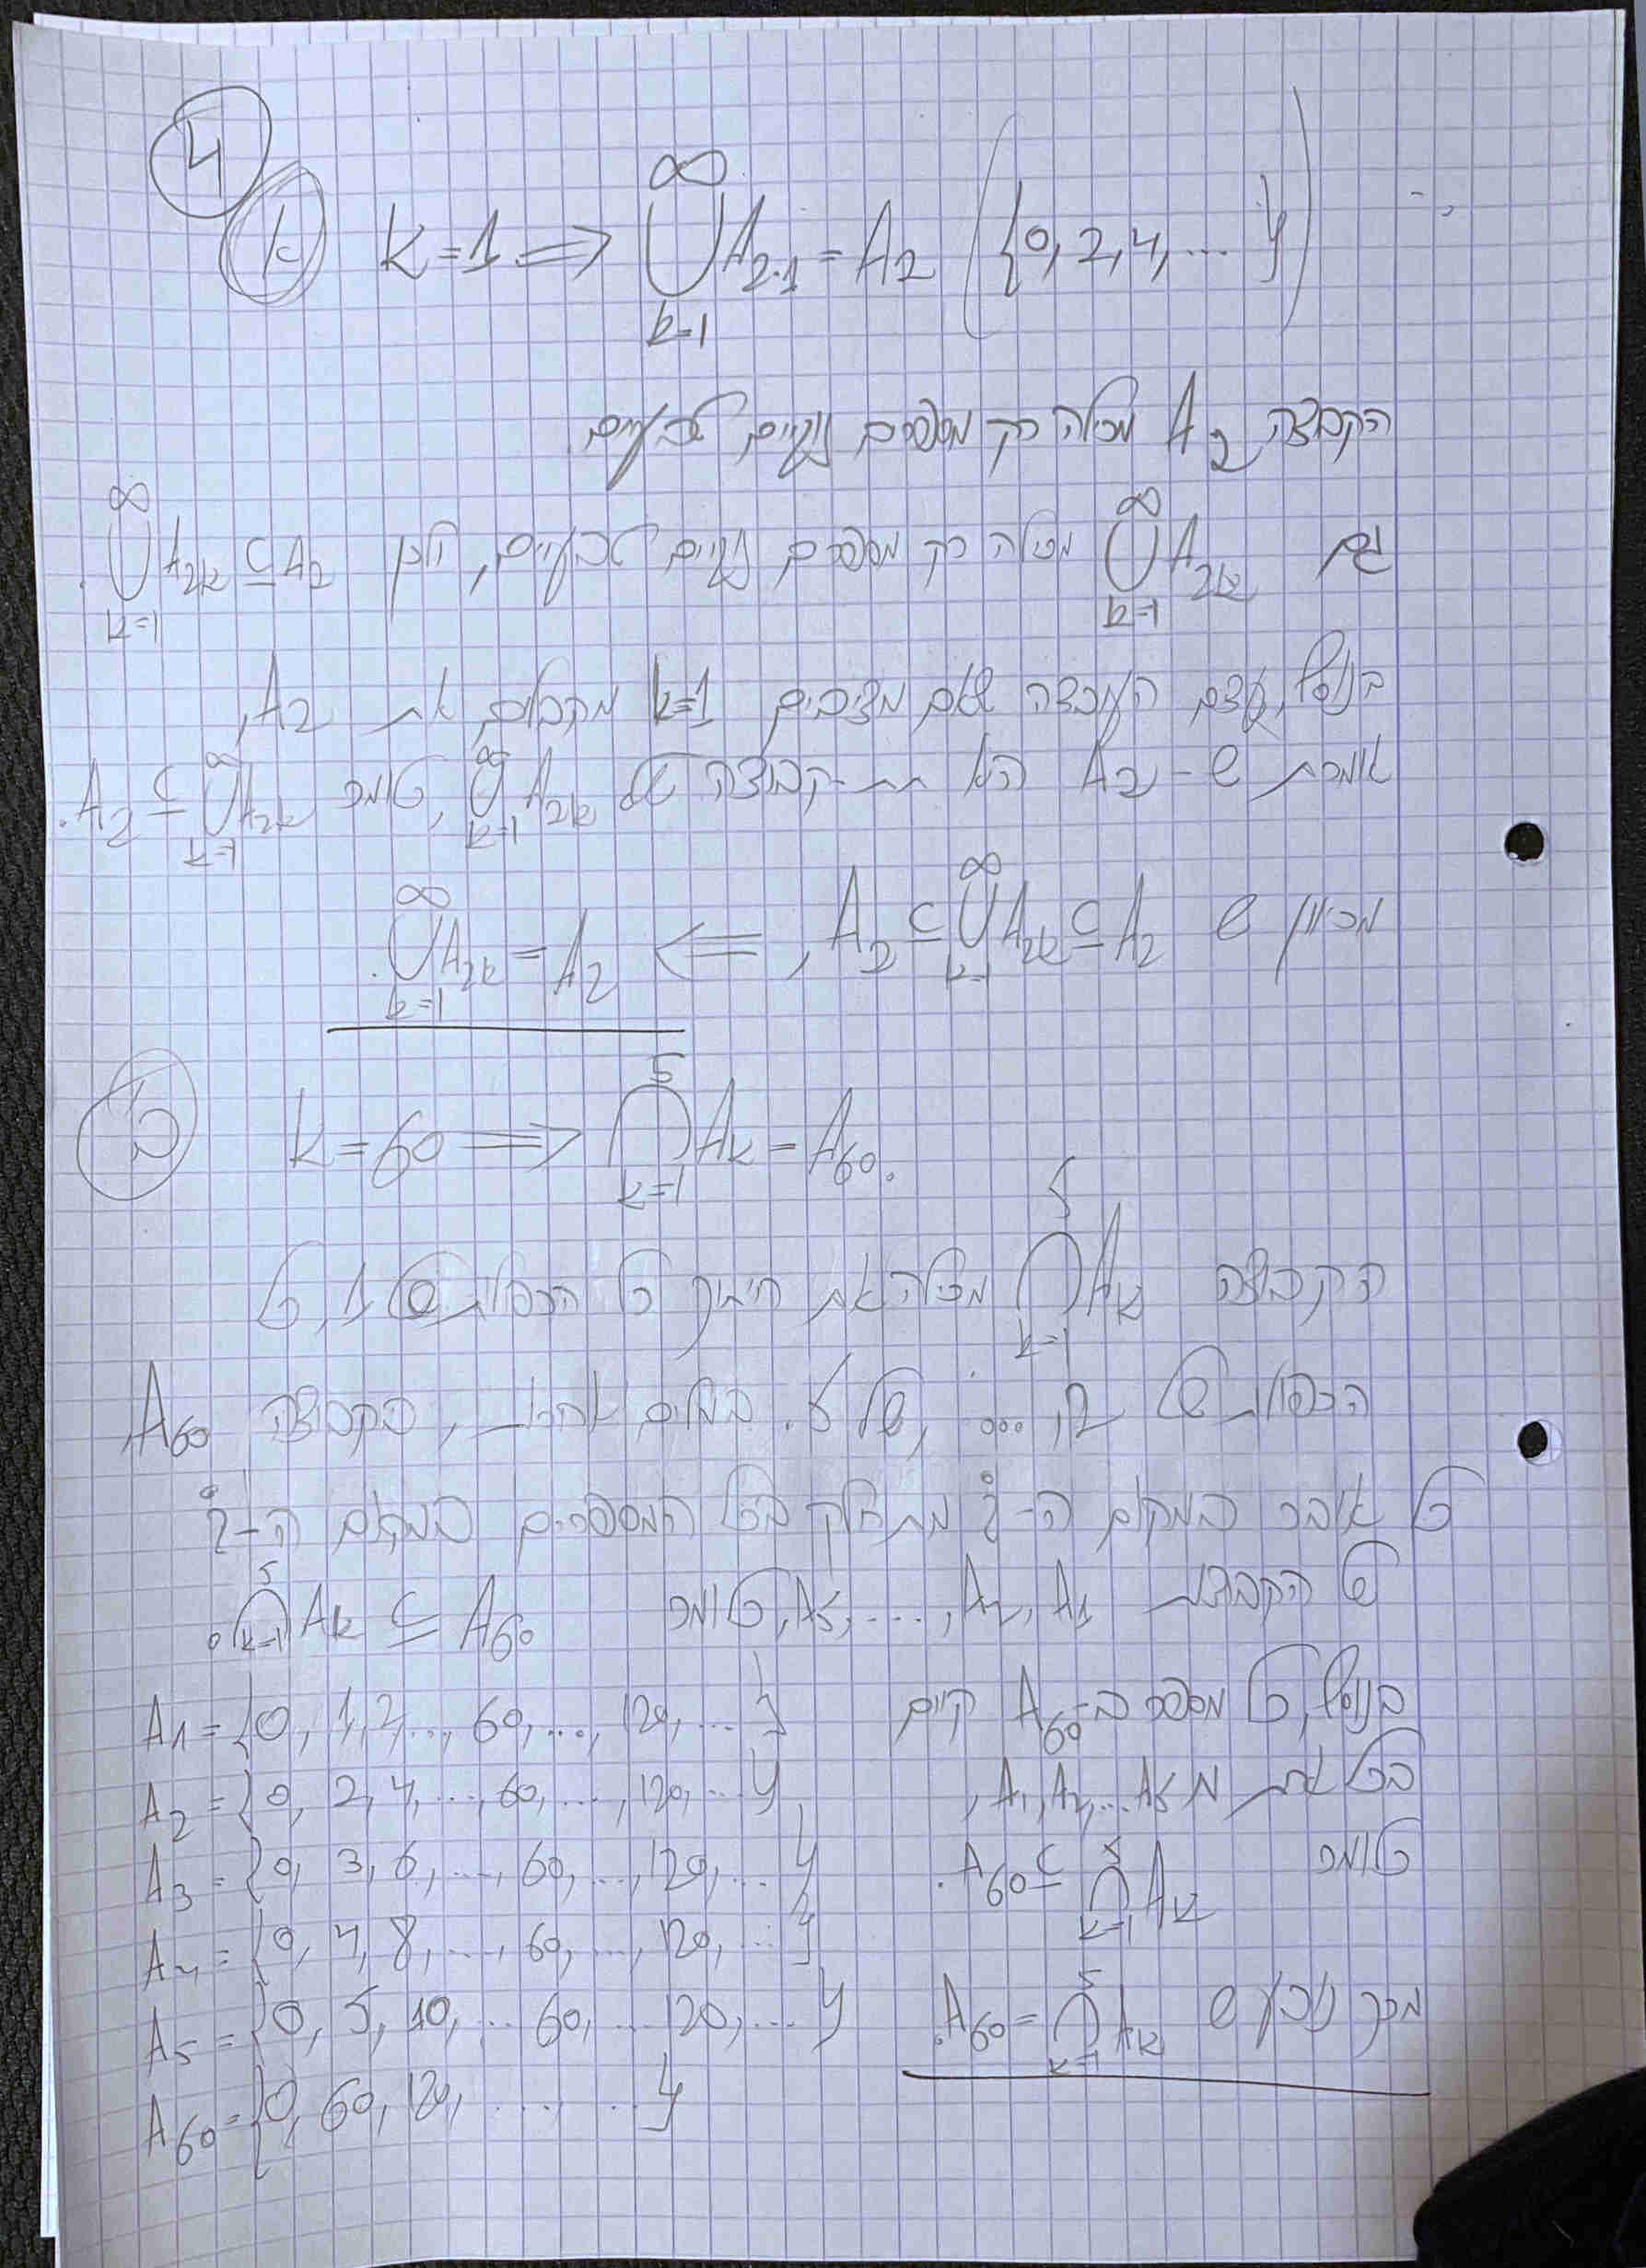 4
א k=1 ⟹ ⋃_{k=1}^{∞} A_{2·1} = A_2 ({0, 2, 4, ... })
הקבוצה A_2 מכילה רק מספרים זוגיים טבעיים.
גם ⋃_{k=1}^{∞} A_{2k} מכילה רק מספרים זוגיים טבעיים, ולכן ⋃_{k=1}^{∞} A_{2k} ⊆ A_2.
בנוסף, עצם העובדה שאם מציבים k=1 מקבלים את A_2,
אומרת ש- A_2 היא תת-קבוצה של ⋃_{k=1}^{∞} A_{2k}, כלומר A_2 ⊆ ⋃_{k=1}^{∞} A_{2k}.
מכיוון ש A_2 ⊆ ⋃_{k=1}^{∞} A_{2k} ⊆ A_2, ⟸ ⋃_{k=1}^{∞} A_{2k} = A_2.
ב k=60 ⟹ ⋂_{k=1}^{5} A_k = A_60.
הקבוצה ⋂_{k=1}^{5} A_k מכילה את חיתוך כל הכפולות של 1, כל
הכפולות של 2, ..., של 5. במלים אחרות, בקבוצה A_60
כל איבר במקום ה-i מתחלק בכל המספרים במקום ה-i
של הקבוצות A_1, A_2, ...., A_5, כלומר ⋂_{k=1}^{5} A_k ⊆ A_60.
בנוסף, כל מספר ב-A_60 קיים
בכל אחת מ A_1, A_2, ... A_5,
כלומר A_60 ⊆ ⋂_{k=1}^{5} A_k.
מכך נובע ש A_60 = ⋂_{k=1}^{5} A_k.
A_1 = {0, 1, 2, ..., 60, ..., 120, ... }
A_2 = {0, 2, 4, ..., 60, ..., 120, ... }
A_3 = {0, 3, 6, ..., 60, ..., 120, ... }
A_4 = {0, 4, 8, ..., 60, ..., 120, ... }
A_5 = {0, 5, 10, ... 60, ... 120, ... }
A_60 = {0, 60, 120, ..... }